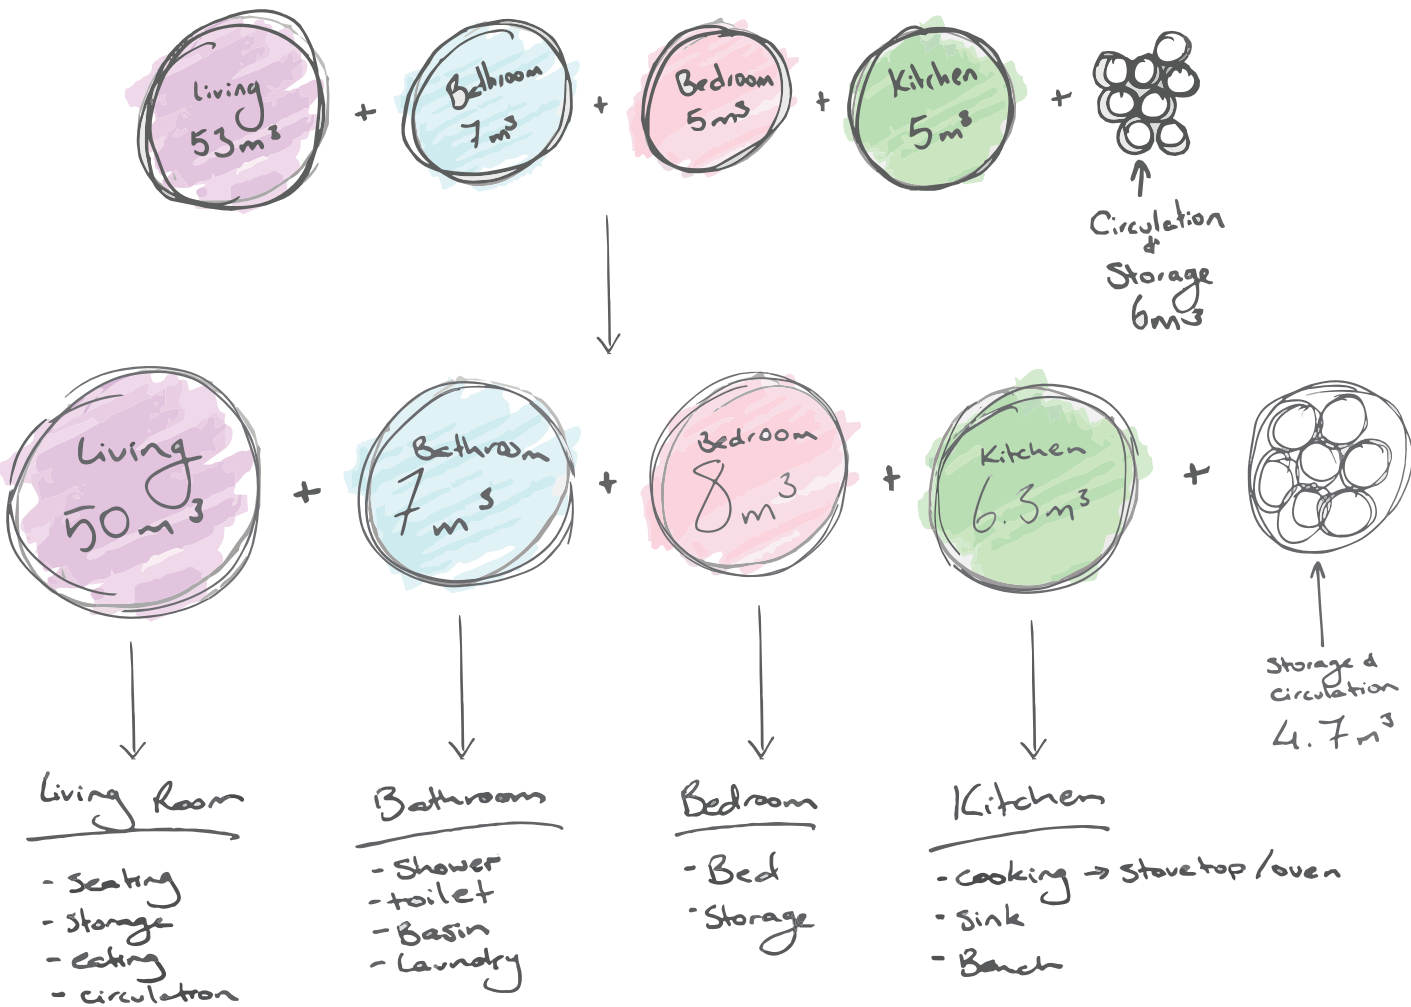 Living
53m³
+
Bathroom
7m³
+
Bedroom
5m³
+
Kitchen
5m³
+
Circulation
&
Storage
6m³
Living
50m³
+
Bathroom
7m³
+
Bedroom
8m³
+
Kitchen
6.3m³
+
Storage &
circulation
4.7m³
Living Room
- seating
- storage
- eating
- circulation
Bathroom
- Shower
- toilet
- Basin
- Laundry
Bedroom
- Bed
- Storage
Kitchen
- cooking → stovetop/oven
- Sink
- Bench